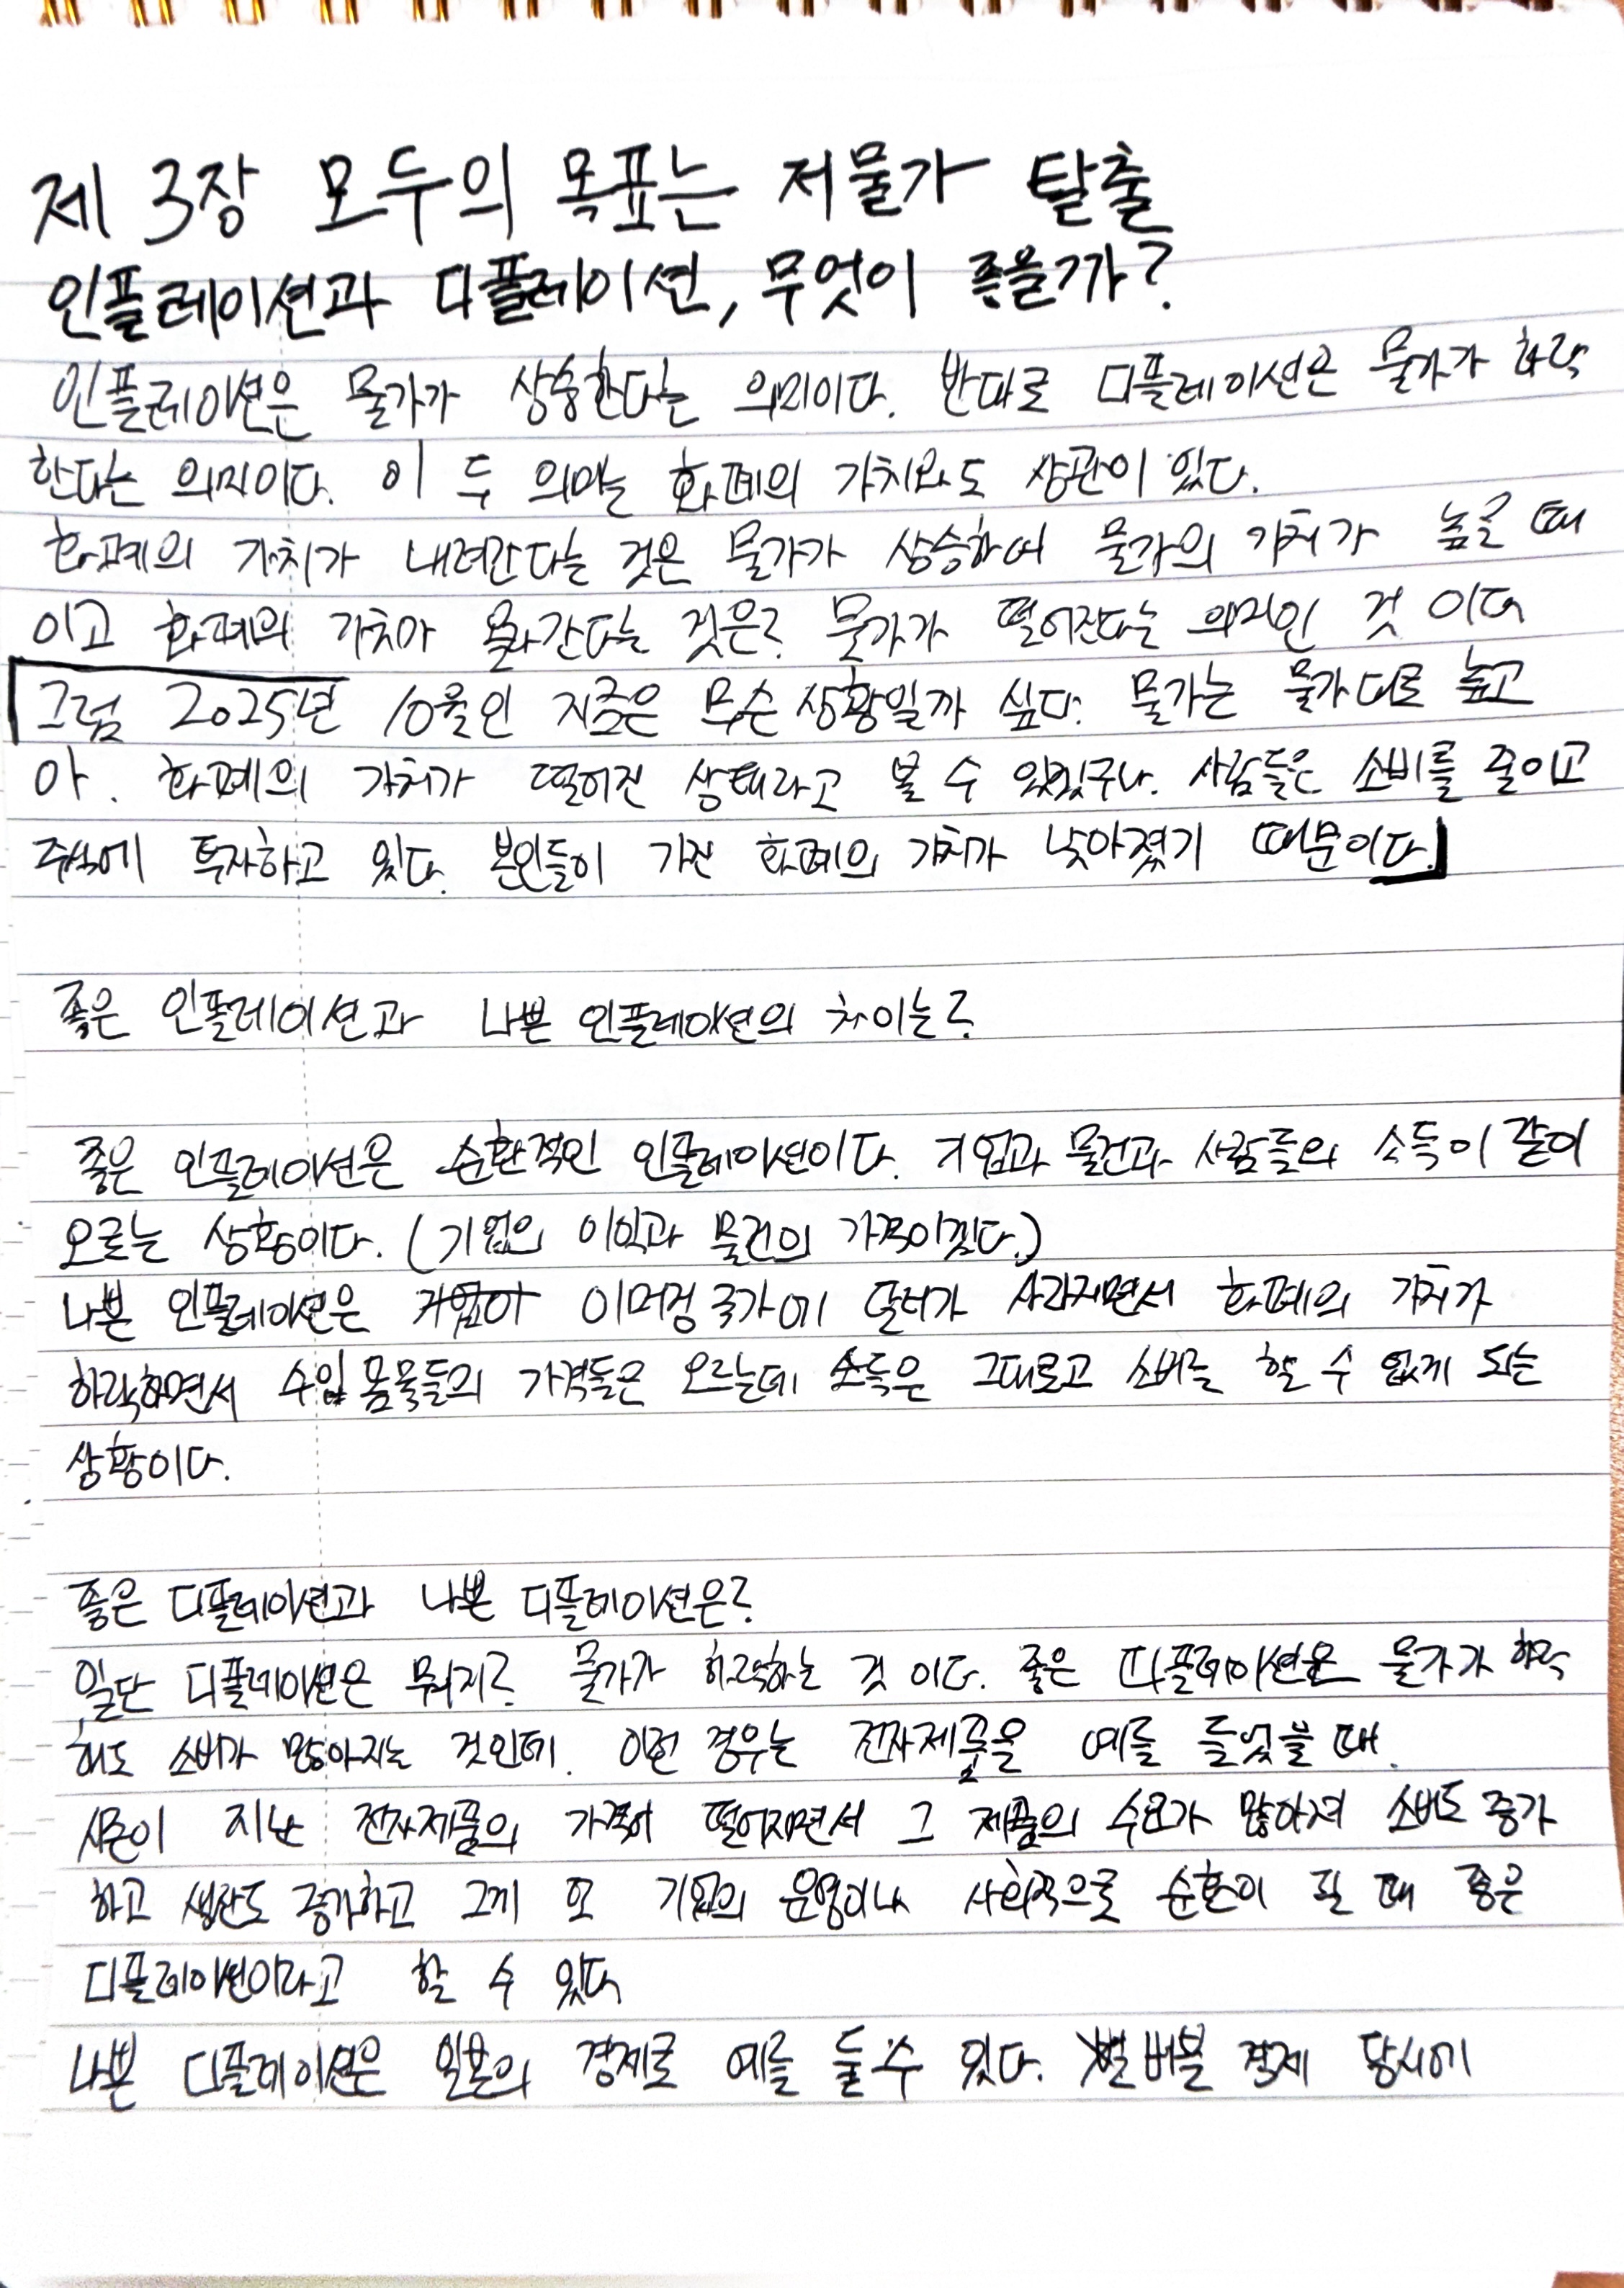 제 3장 모두의 목표는 저물가 탈출
인플레이션과 디플레이션, 무엇이 좋을까?
인플레이션은 물가가 상승한다는 의미이다. 반대로 디플레이션은 물가가 하락
한다는 의미이다. 이 두 의미는 화폐의 가치와도 상관이 있다.
화폐의 가치가 내려간다는 것은 물가가 상승하여 물가의 가치가 높을 때
이고 화폐의 가치가 올라간다는 것은? 물가가 떨어진다는 의미인 것 이다
그럼 2025년 10월인 지금은 무슨 상황일까 싶다. 물가는 물가대로 높고
아. 화폐의 가치가 떨어진 상태라고 볼 수 있겠구나. 사람들은 소비를 줄이고
주식에 투자하고 있다. 본인들이 가진 화폐의 가치가 낮아졌기 때문이다.
좋은 인플레이션과 나쁜 인플레이션의 차이는?
좋은 인플레이션은 순환적인 인플레이션이다. 기업과 물건과 사람들의 소득이 같이
오르는 상황이다. (기업의 이익과 물건의 가격이겠다.)
나쁜 인플레이션은 이머징 국가에 달러가 사라지면서 화폐의 가치가
하락하면서 수입 품물들의 가격들은 오르는데 소득은 그대로고 소비를 할 수 없게 되는
상황이다.
좋은 디플레이션과 나쁜 디플레이션은?
일단 디플레이션은 뭐지? 물가가 하락하는 것 이다. 좋은 디플레이션은 물가가 하락
해도 소비가 많아지는 것인데. 이런 경우는 전자제품을 예를 들었을 때.
시즌이 지난 전자제품의 가격이 떨어지면서 그 제품의 수요가 많아져 소비도 증가
하고 생산도 증가하고 그게 또 기업의 운영이나 사회적으로 순환이 될 때 좋은
디플레이션이라고 할 수 있다
나쁜 디플레이션은 일본의 경제로 예를 들 수 있다. 버블 경제 당시에